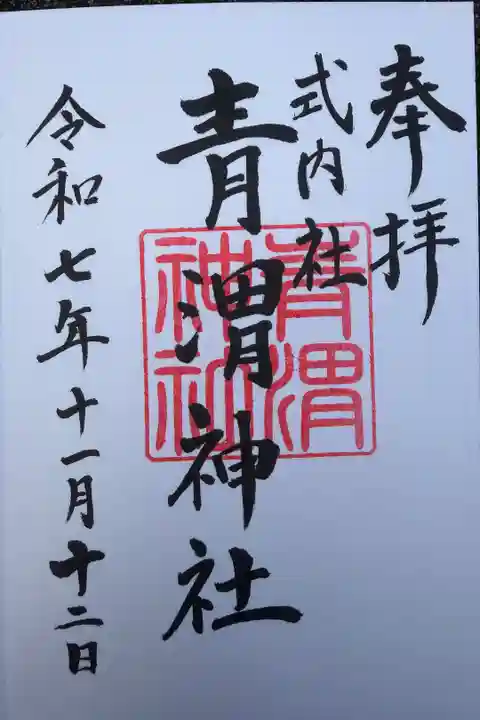 奉拝
式内社
青渭神社
青渭神社
令和七年十一月十二日